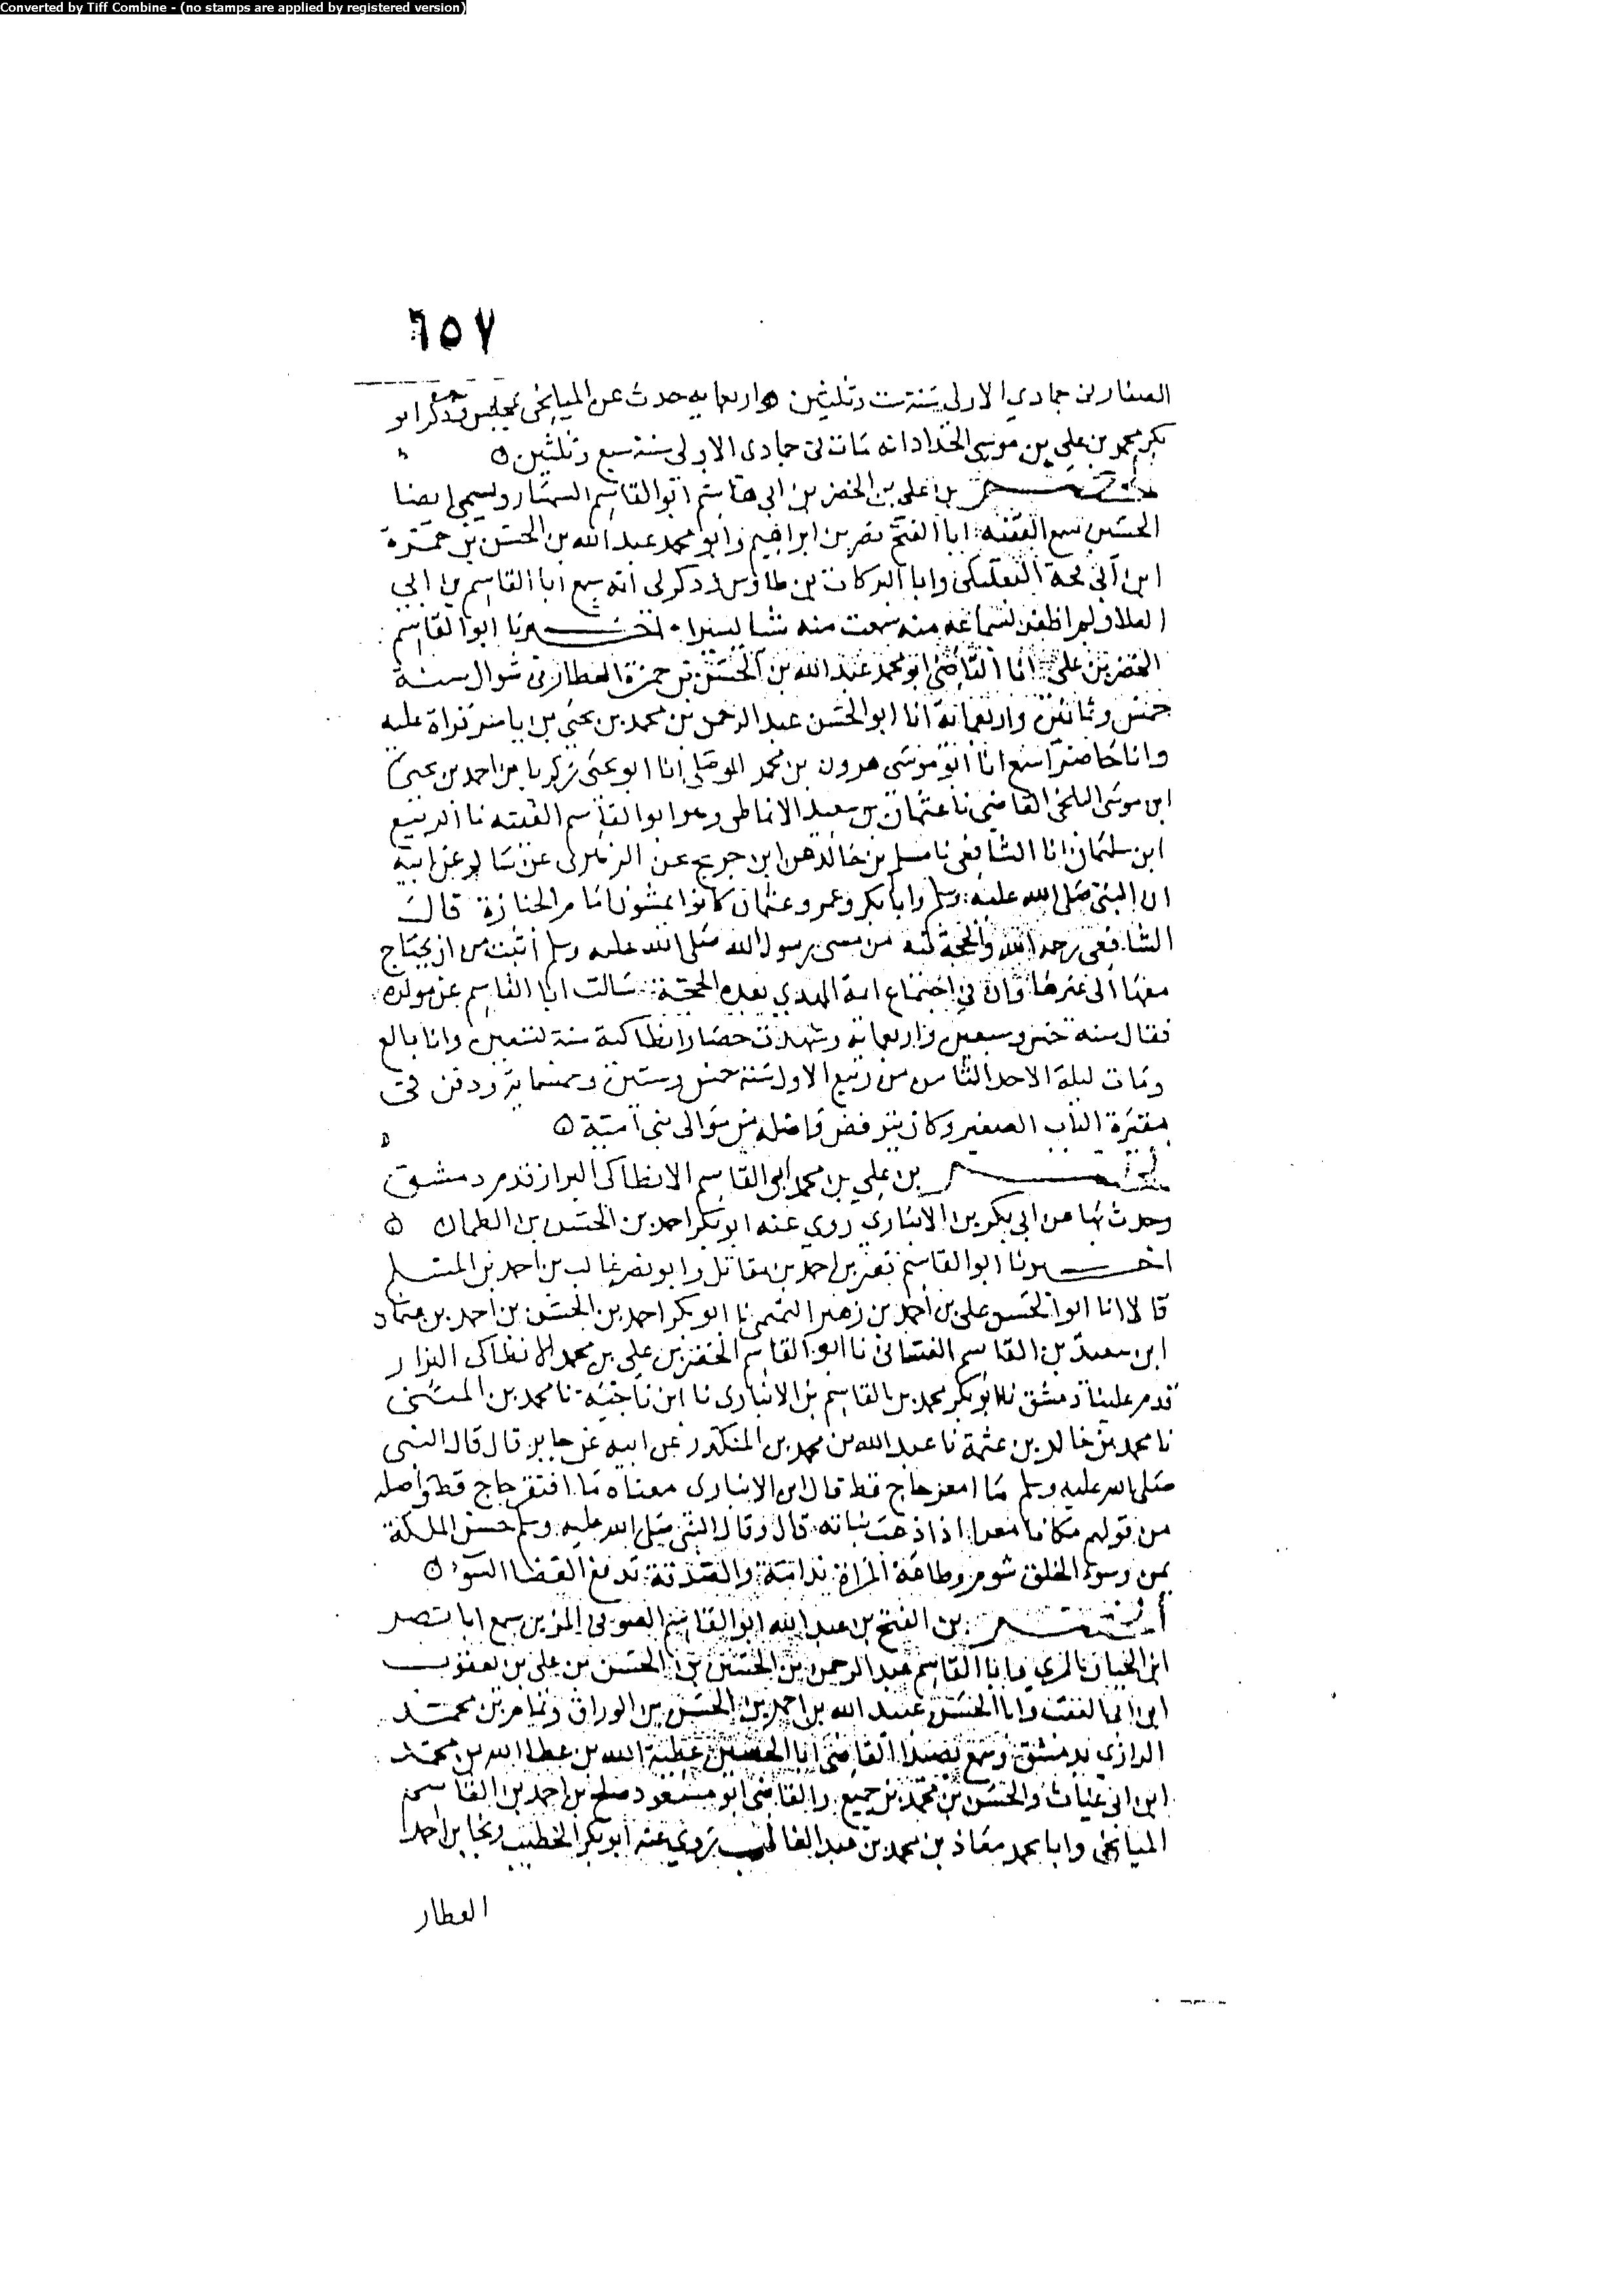 Converted by Tiff Combine - (no stamps are applied by registered version)
٦٥٧
الصفار في جمادي الاولى سنة ست وثلثين واربعمايه حدث عن الميانجي بمجلس وذكر ابو
بكر محمد بن علي بن موسى الحداد انه مات في جمادى الاولى سنة سبع وثلثين
الخضر بن علي بن الخضر بن ابي هاشم ابو القاسم السمسار ويسمى ايضا
الحسين سمع الفقيه ابا الفتح نصر بن ابراهيم وابو محمد عبد الله بن الحسن بن حمزة
ابن ابي البعلبكي وابا البركات بن طاوس وذكر لي انه سمع ابا القاسم بن ابي
العلا ولم اظفر بسماعه منه سمعت منه شيا يسيرا اخبرنا ابو القاسم
الخضر بن علي انا القاضي ابو محمد عبد الله بن الحسن بن حمزة العطار في شوال سنة
خمس وثمانين واربعمائة انا ابو الحسن عبد الرحمن بن محمد بن يحيى بن ياسر قراة عليه
وانا حاضر اسمع انا ابو موسى هرون بن محمد الموصلي انا ابو يحيى زكريا بن احمد بن يحيى
ابن موسى البلخي القاضي نا عثمان بن سعيد الانماطي وهو ابو القاسم الفقيه نا الربيع
ابن سليمان انا الشافعي نا مسلم بن خالد عن ابن جريج عن الزهري عن سالم عن ابيه
ان النبي صلى الله عليه وسلم وابا بكر وعمر وعثمان كانوا يمشون امام الجنازة قال
الشافعي رحمه الله والحجة فيه من مشى رسول الله صلى الله عليه وسلم اثبت من ان يحتاج
معها الى غيرها وان في اجتماع ايمة الهدي بعده الحجة سالت ابا القاسم عن مولده
فقال سنة خمس وسبعين واربعمايه وشهدت حصار انطاكية سنة تسعين وانا بالغ
ومات ليلة الاحد الثامن من ربيع الاول سنة خمس وستين وخمسماية ودفن في
مقبرة الباب الصغير وكان يترفض واصله من موالى بني امية
الخضر بن علي بن محمد ابو القاسم الانطاكى البزاز قدم دمشق
وحدث بها عن ابي بكر بن الانباري روي عنه ابو بكر احمد بن الحسن بن الطيان
اخبرنا ابو القاسم نصر بن احمد بن مقاتل وابو نصر غالب بن احمد بن المسلم
قالا انا ابو الحسن علي بن احمد بن زهير التميمي نا ابو بكر احمد بن الحسن بن احمد بن عثمان
ابن سعيد بن القاسم الغساني نا ابو القاسم الخضر بن علي بن محمد الانطاكى البزار
قدم علينا دمشق نا ابو بكر محمد بن القاسم بن الانباري نا ابن ناجية نا محمد بن المثنى
نا محمد بن خالد بن عثمة نا عبد الله بن محمد بن المنكدر عن ابيه عن جابر قال قال النبي
صلى الله عليه وسلم ما امعر حاج قط قال ابن الانباري معناه ما افتقر حاج قط واصله
من قولهم مكانا معرا اذا ذهب نباته قال وقال النبي صلى الله عليه وسلم حسن الملكة
يمن وسوء الخلق شوم وطاعة المراة ندامة والصدقة تدفع القضا السوء
الخضر بن الفتح بن عبد الله ابو القاسم الصوفي المزين سمع ابا نصر
ابن الجبان بالمزي وابا القاسم عبد الرحمن بن الحسين بن الحسن بن علي بن يعقوب
ابن ابي العقب وابا الحسن عبيد الله بن احمد بن الحسن بن الوراق وتمام بن محمد
الرازي بدمشق وسمع بصيدا القاضي ابا الحسين عطية الله بن عطا الله بن محمد
ابن ابي غياث والحسن بن محمد بن جميع والقاضي ابو مسعود صلح بن احمد بن القاسم
الميانجي وابا محمد معاذ بن محمد بن عبد الغالب روي عنه ابو بكر الخطيب ونجا بن احمد
العطار